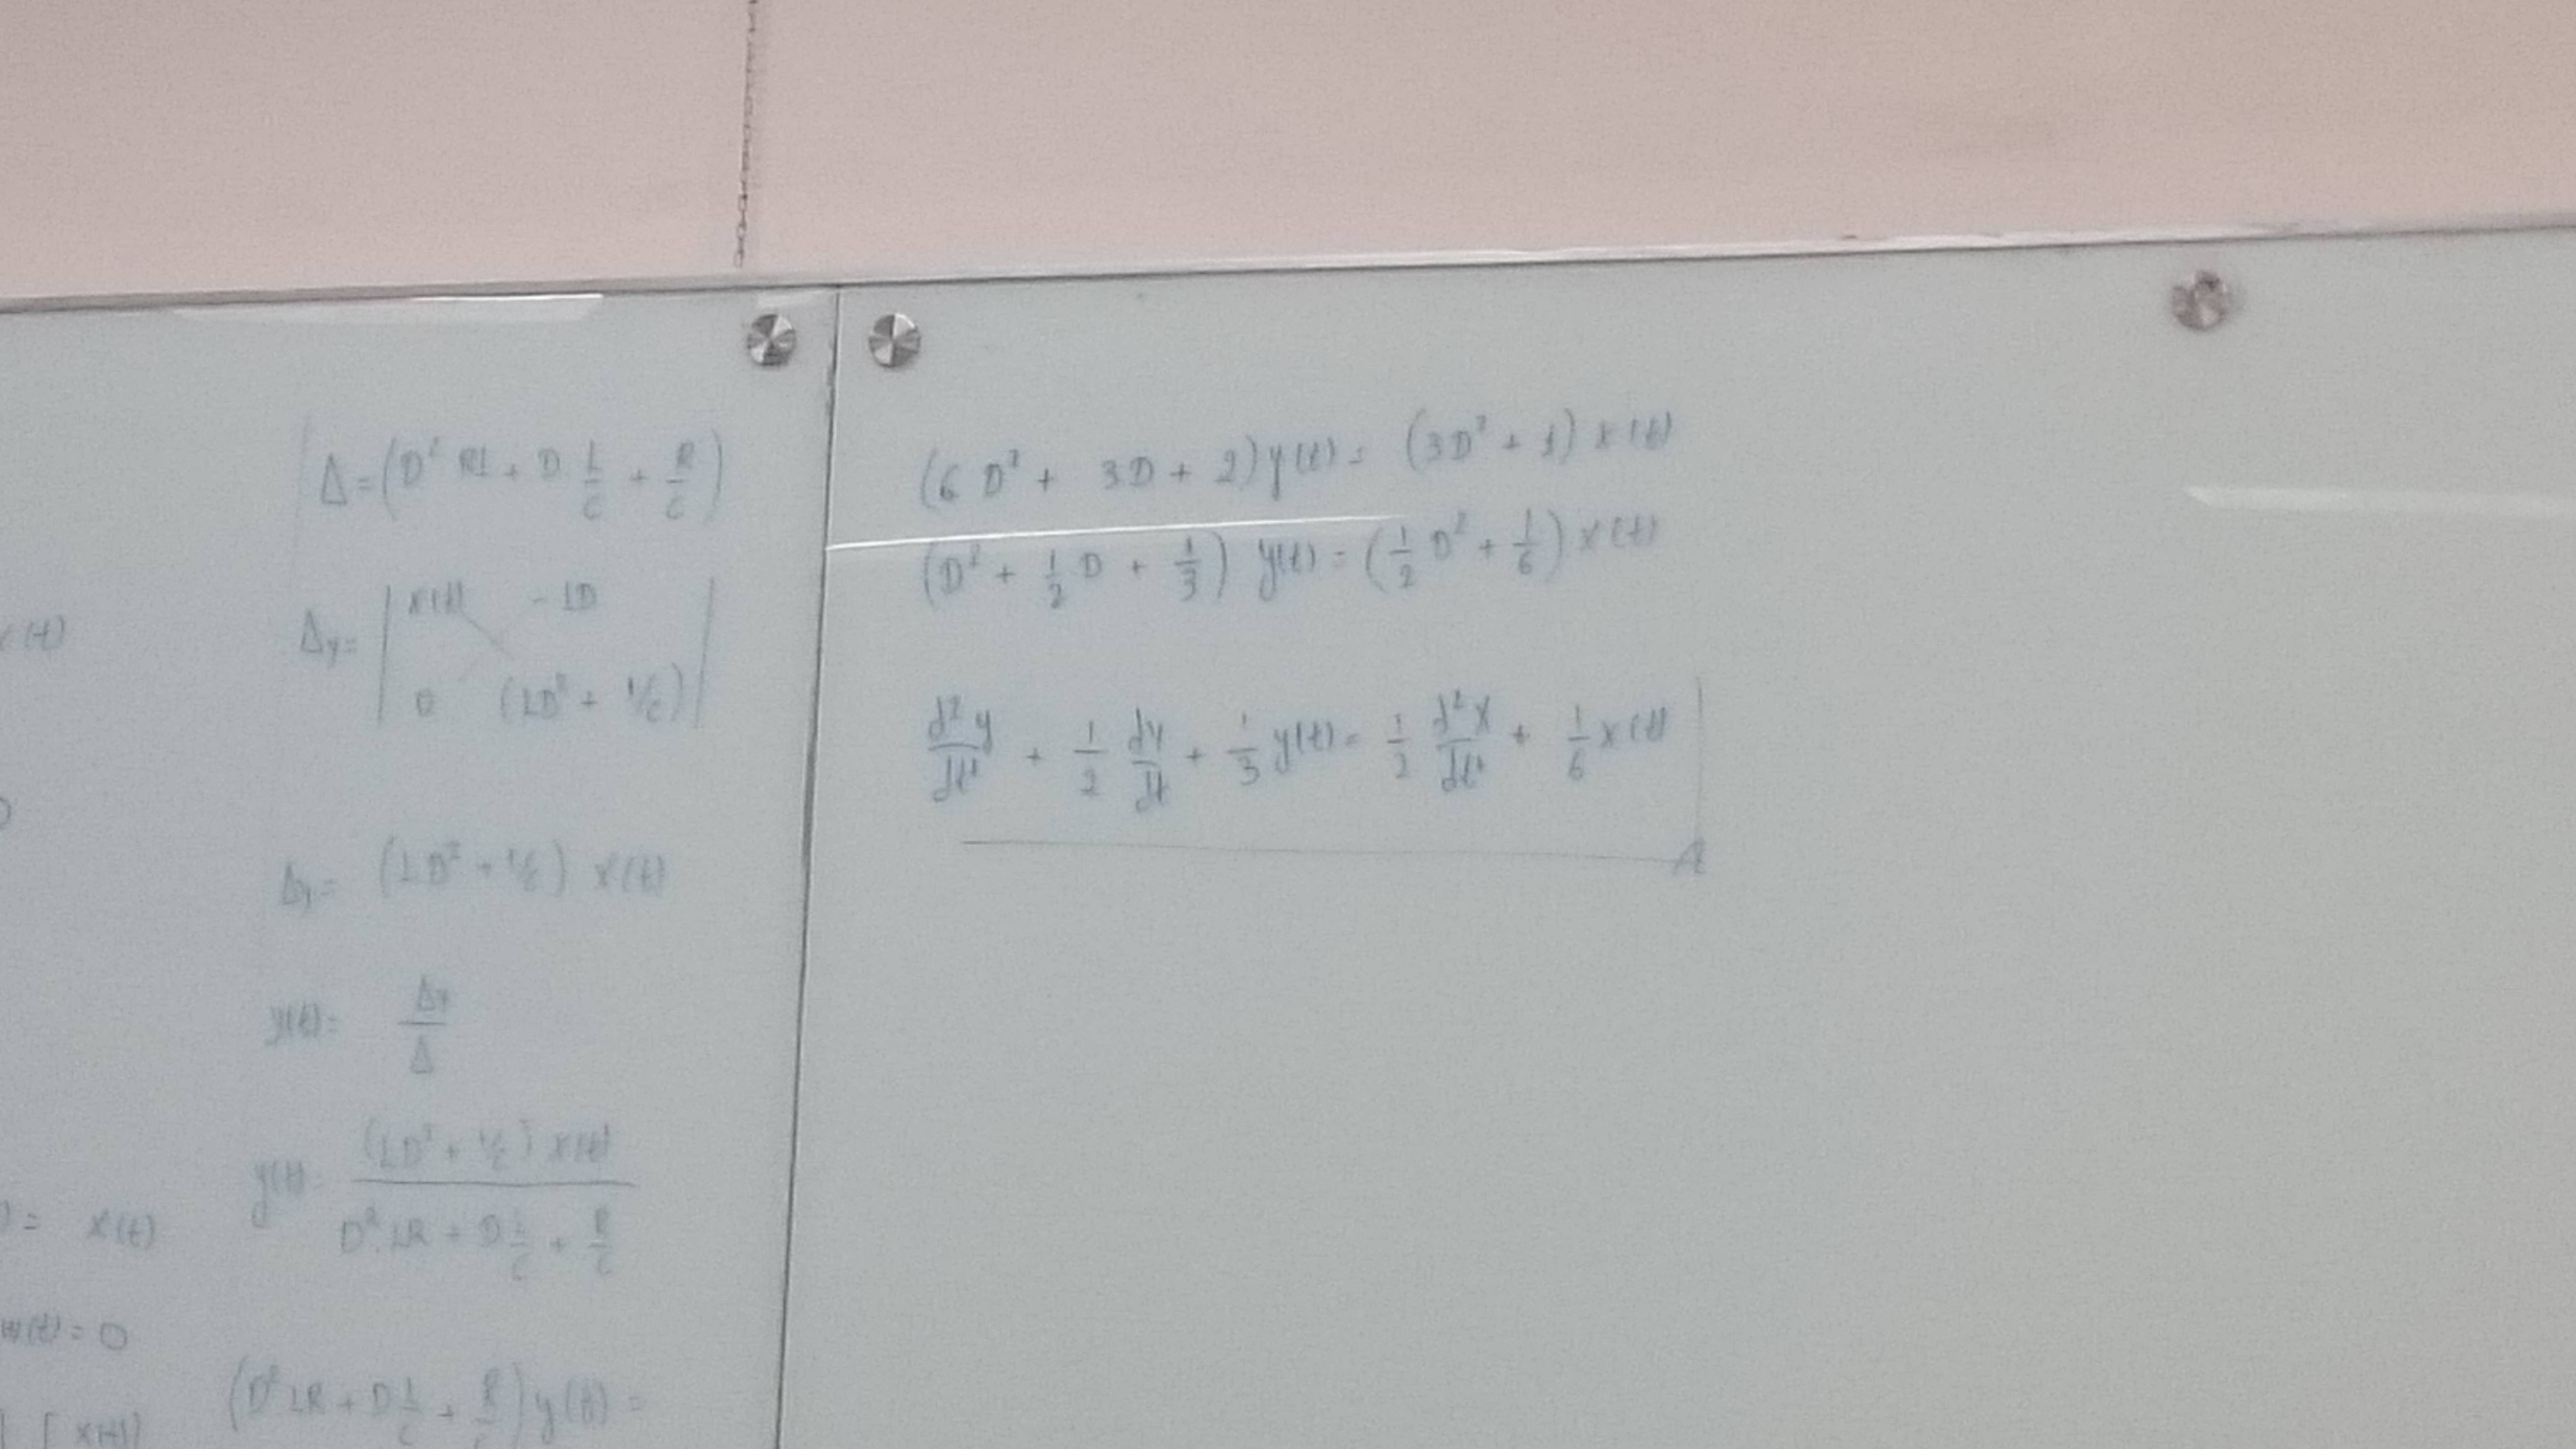 x(t)
) = x(t)
w(t) = 0
[ x(t)
Δ = (D² RL + D L/C + R/C)
Δy = | x(t) - LD |
| 0 (LD² + 1/C) |
Δy = (LD² + 1/C) x(t)
y(t) = Δy/Δ
y(t) = (LD² + 1/C) x(t) / D² LR + D L/C + R/C
(D² LR + D L/C + R/C) y(t) =
(6 D² + 3D + 2) y(t) = (3D² + 1) x(t)
(D² + 1/2 D + 1/3) y(t) = (1/2 D² + 1/6) x(t)
d²y/dt² + 1/2 dy/dt + 1/3 y(t) = 1/2 d²x/dt² + 1/6 x(t)